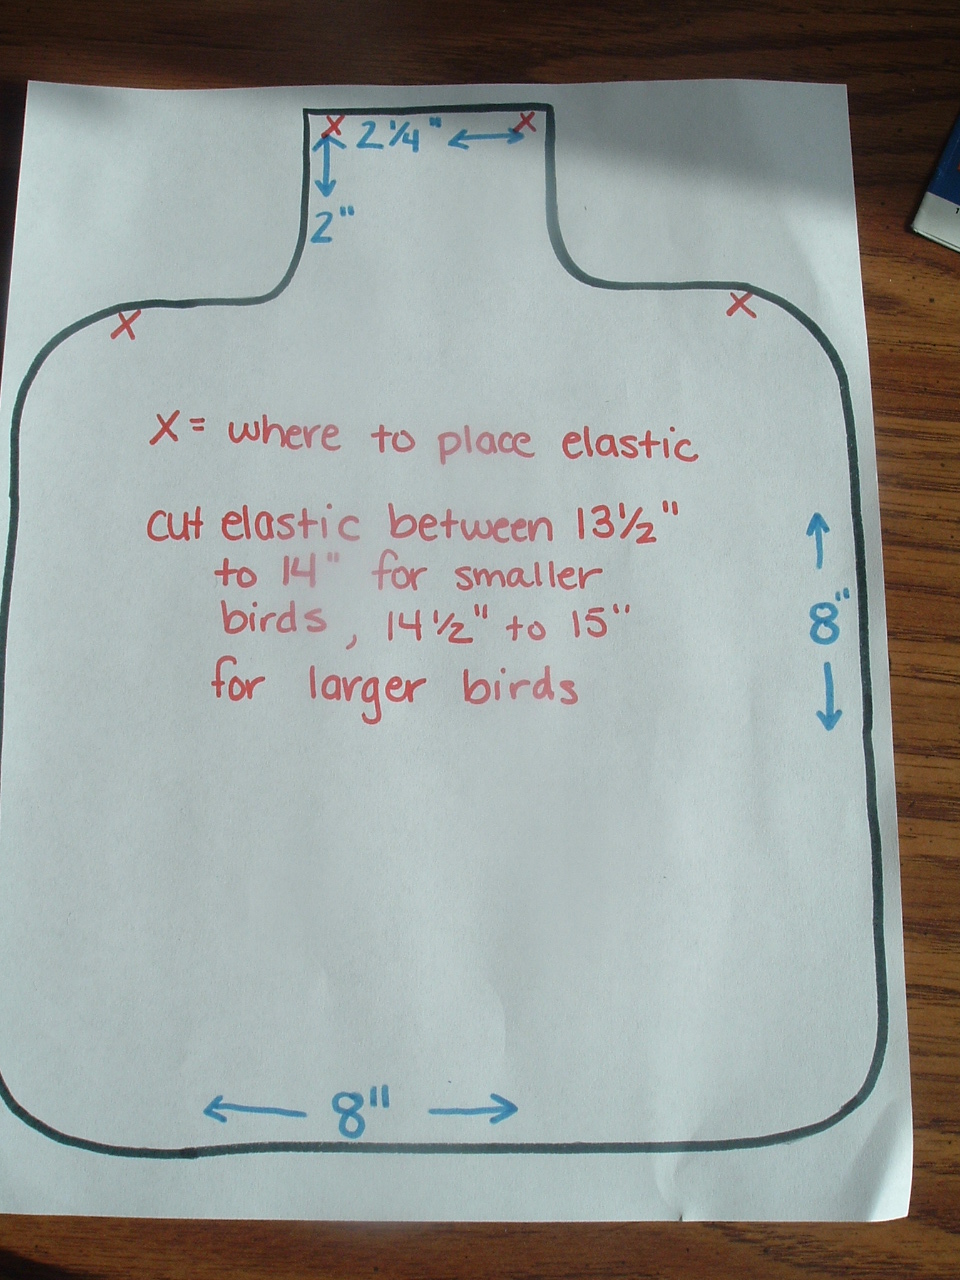 x 2 1/4" x
2"
x x
x = where to place elastic
cut elastic between 13 1/2"
to 14" for smaller
birds, 14 1/2" to 15"
for larger birds
8"
8"